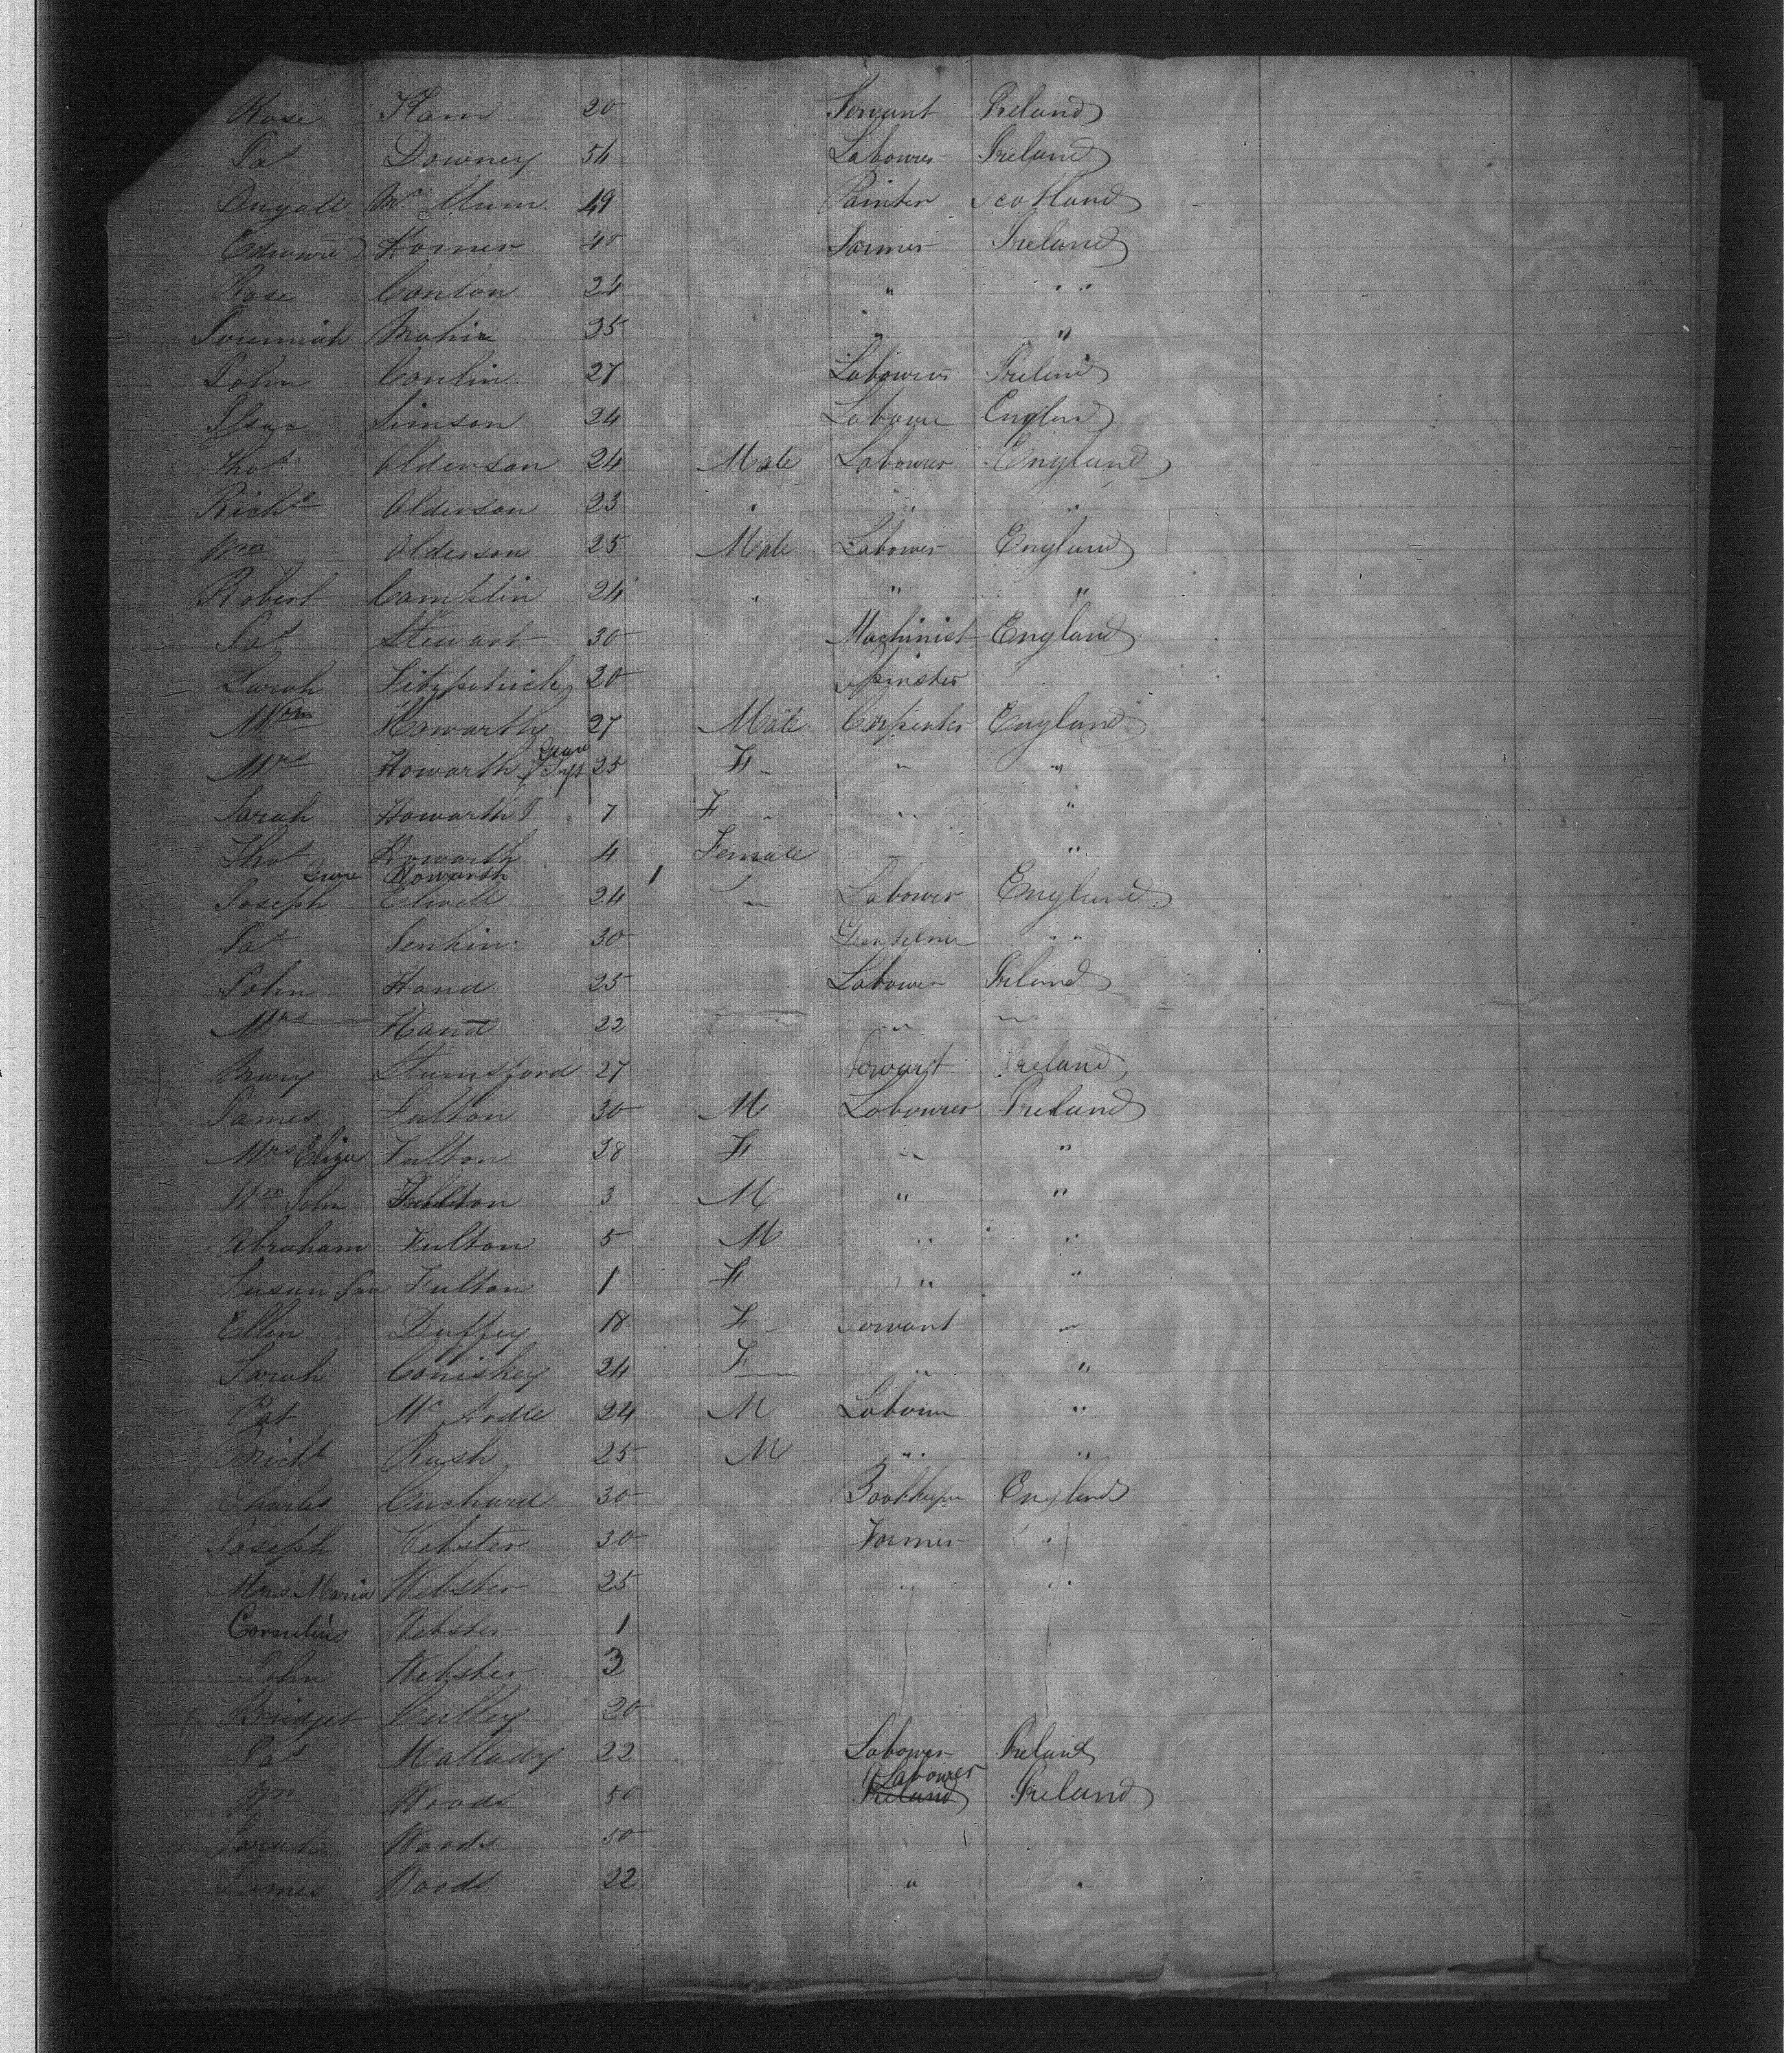 Rose Ham 20 Servant Ireland
Pat Downey 54 Labourer Ireland
Dugald Mc 49 Painter Scotland
Edward Horner 40 Farmer Ireland
Rose Conlon 24 " "
Jeremiah 35 " "
John Conlin 27 Labourer Ireland
Isaac Simson 24 Laboure Englan
Thos Alderson 24 Male Labourer England
Richd Alderson 23 " " "
Wm Alderson 25 Male Labourer England
Robert Complin 24 " " "
Pat Stewart 30 Machinist England
Sarah Fitzpatrick 20 Spinster
Wm Howarth 27 Male Carpenter England
Mrs Howarth & Inft 25 F " "
Sarah Howarth 7 F " "
Thos Howarth 4 Female "
Howarth
Joseph Elwell 24 " Labourer England
Pat Jenkin 30 " "
John Hand 25 Labourer Ireland
Mrs Hand 22 " "
Mary 27 Servant Ireland
James Fulton 30 M Labourer Ireland
Mrs Eliza Fulton 28 F " "
Wm John Fulton 3 M " "
Abraham Fulton 5 M " "
Susan Jan Fulton 1 F " "
Ellen Duffey 18 F Servant "
Sarah Coniskey 24 F " "
Pat Mc Ardle 24 M Labour "
Micht Rush 25 M " "
Charles Cuchard 30 Bookkeeper England
Joseph Webster 30 Farmer "
Mrs Maria Webster 25 " "
Cornelius Webster 1
John Webster 3
Bridget Culley 20
Pat Mallady 22 Labourer Ireland
Labourer
Wm Woods 50 Ireland Ireland
Sarah Woods 50
James Woods 22 " "